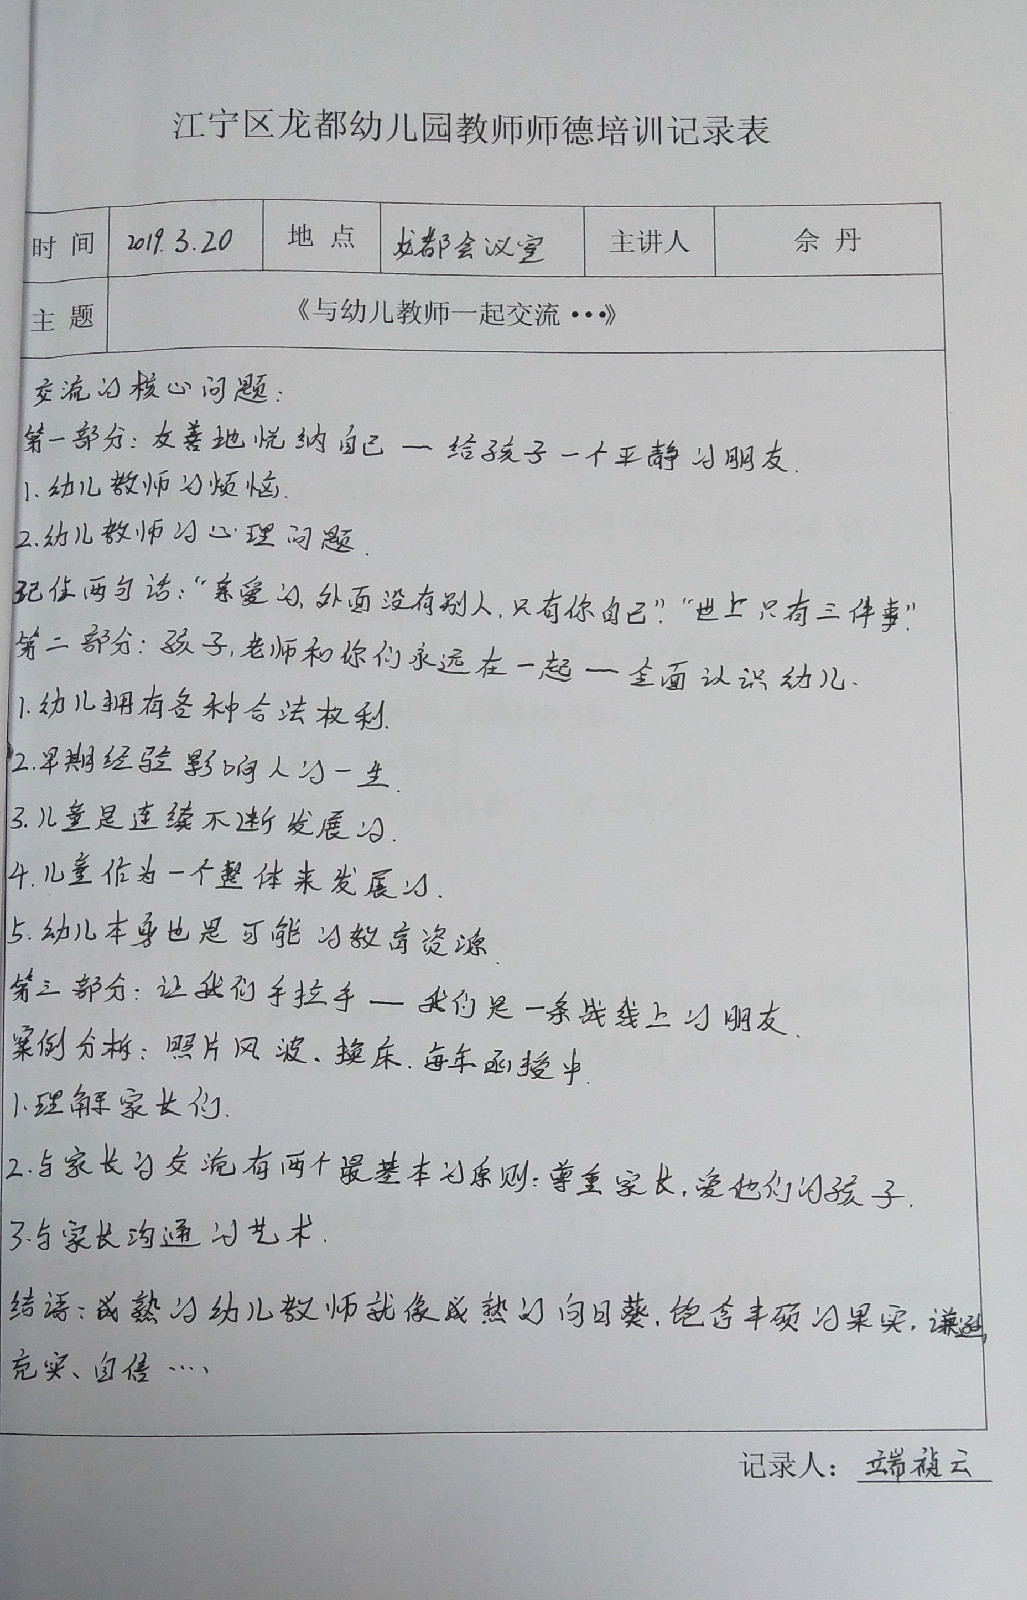 江宁区龙都幼儿园教师师德培训记录表
时 间 2019.3.20 地 点 龙都会议室 主讲人 佘 丹
主 题 《与幼儿教师一起交流···》
交流的核心问题：
第一部分：友善地悦纳自己 — 给孩子一个平静的朋友.
1.幼儿教师的烦恼.
2.幼儿教师的心理问题.
记住两句话：“亲爱的,外面没有别人,只有你自己”.“世上只有三件事”.
第二部分：孩子,老师和你们永远在一起 — 全面认识幼儿.
1.幼儿拥有各种合法权利.
2.早期经验影响人的一生.
3.儿童是连续不断发展的.
4.儿童作为一个整体来发展的.
5.幼儿本身也是可能的教育资源.
第三部分：让我们手拉手 — 我们是一条战线上的朋友.
案例分析：照片风波、换床.每年函授中.
1.理解家长们.
2.与家长的交流有两个最基本的原则：尊重家长,爱他们的孩子.
3.与家长沟通的艺术.
结语：成熟的幼儿教师就像成熟的向日葵,饱含丰硕的果实,谦逊,
充实、自信····
记录人： 端祯云